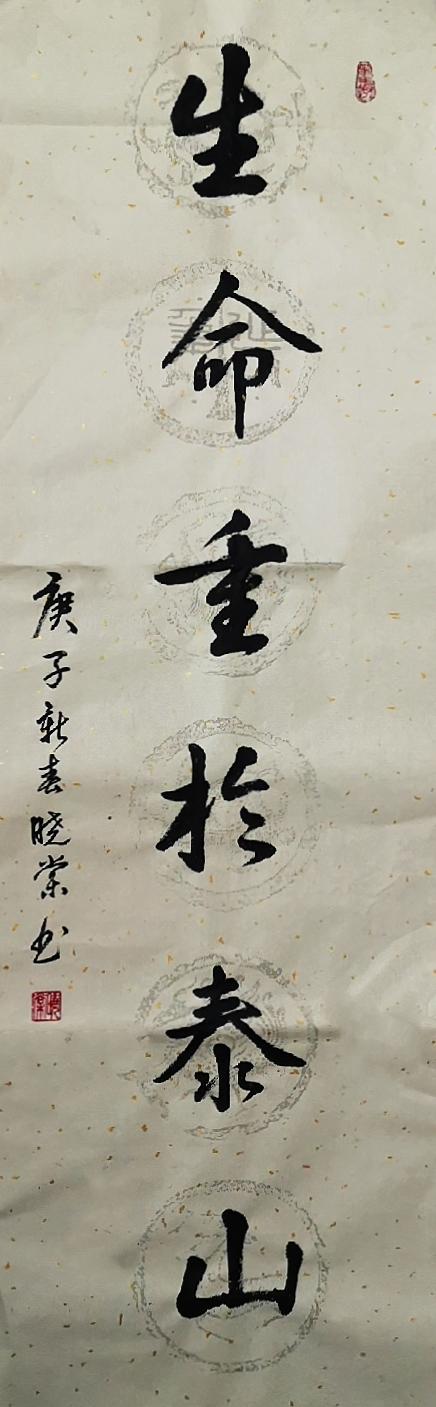 生命重於泰山
庚子新春晓棠书